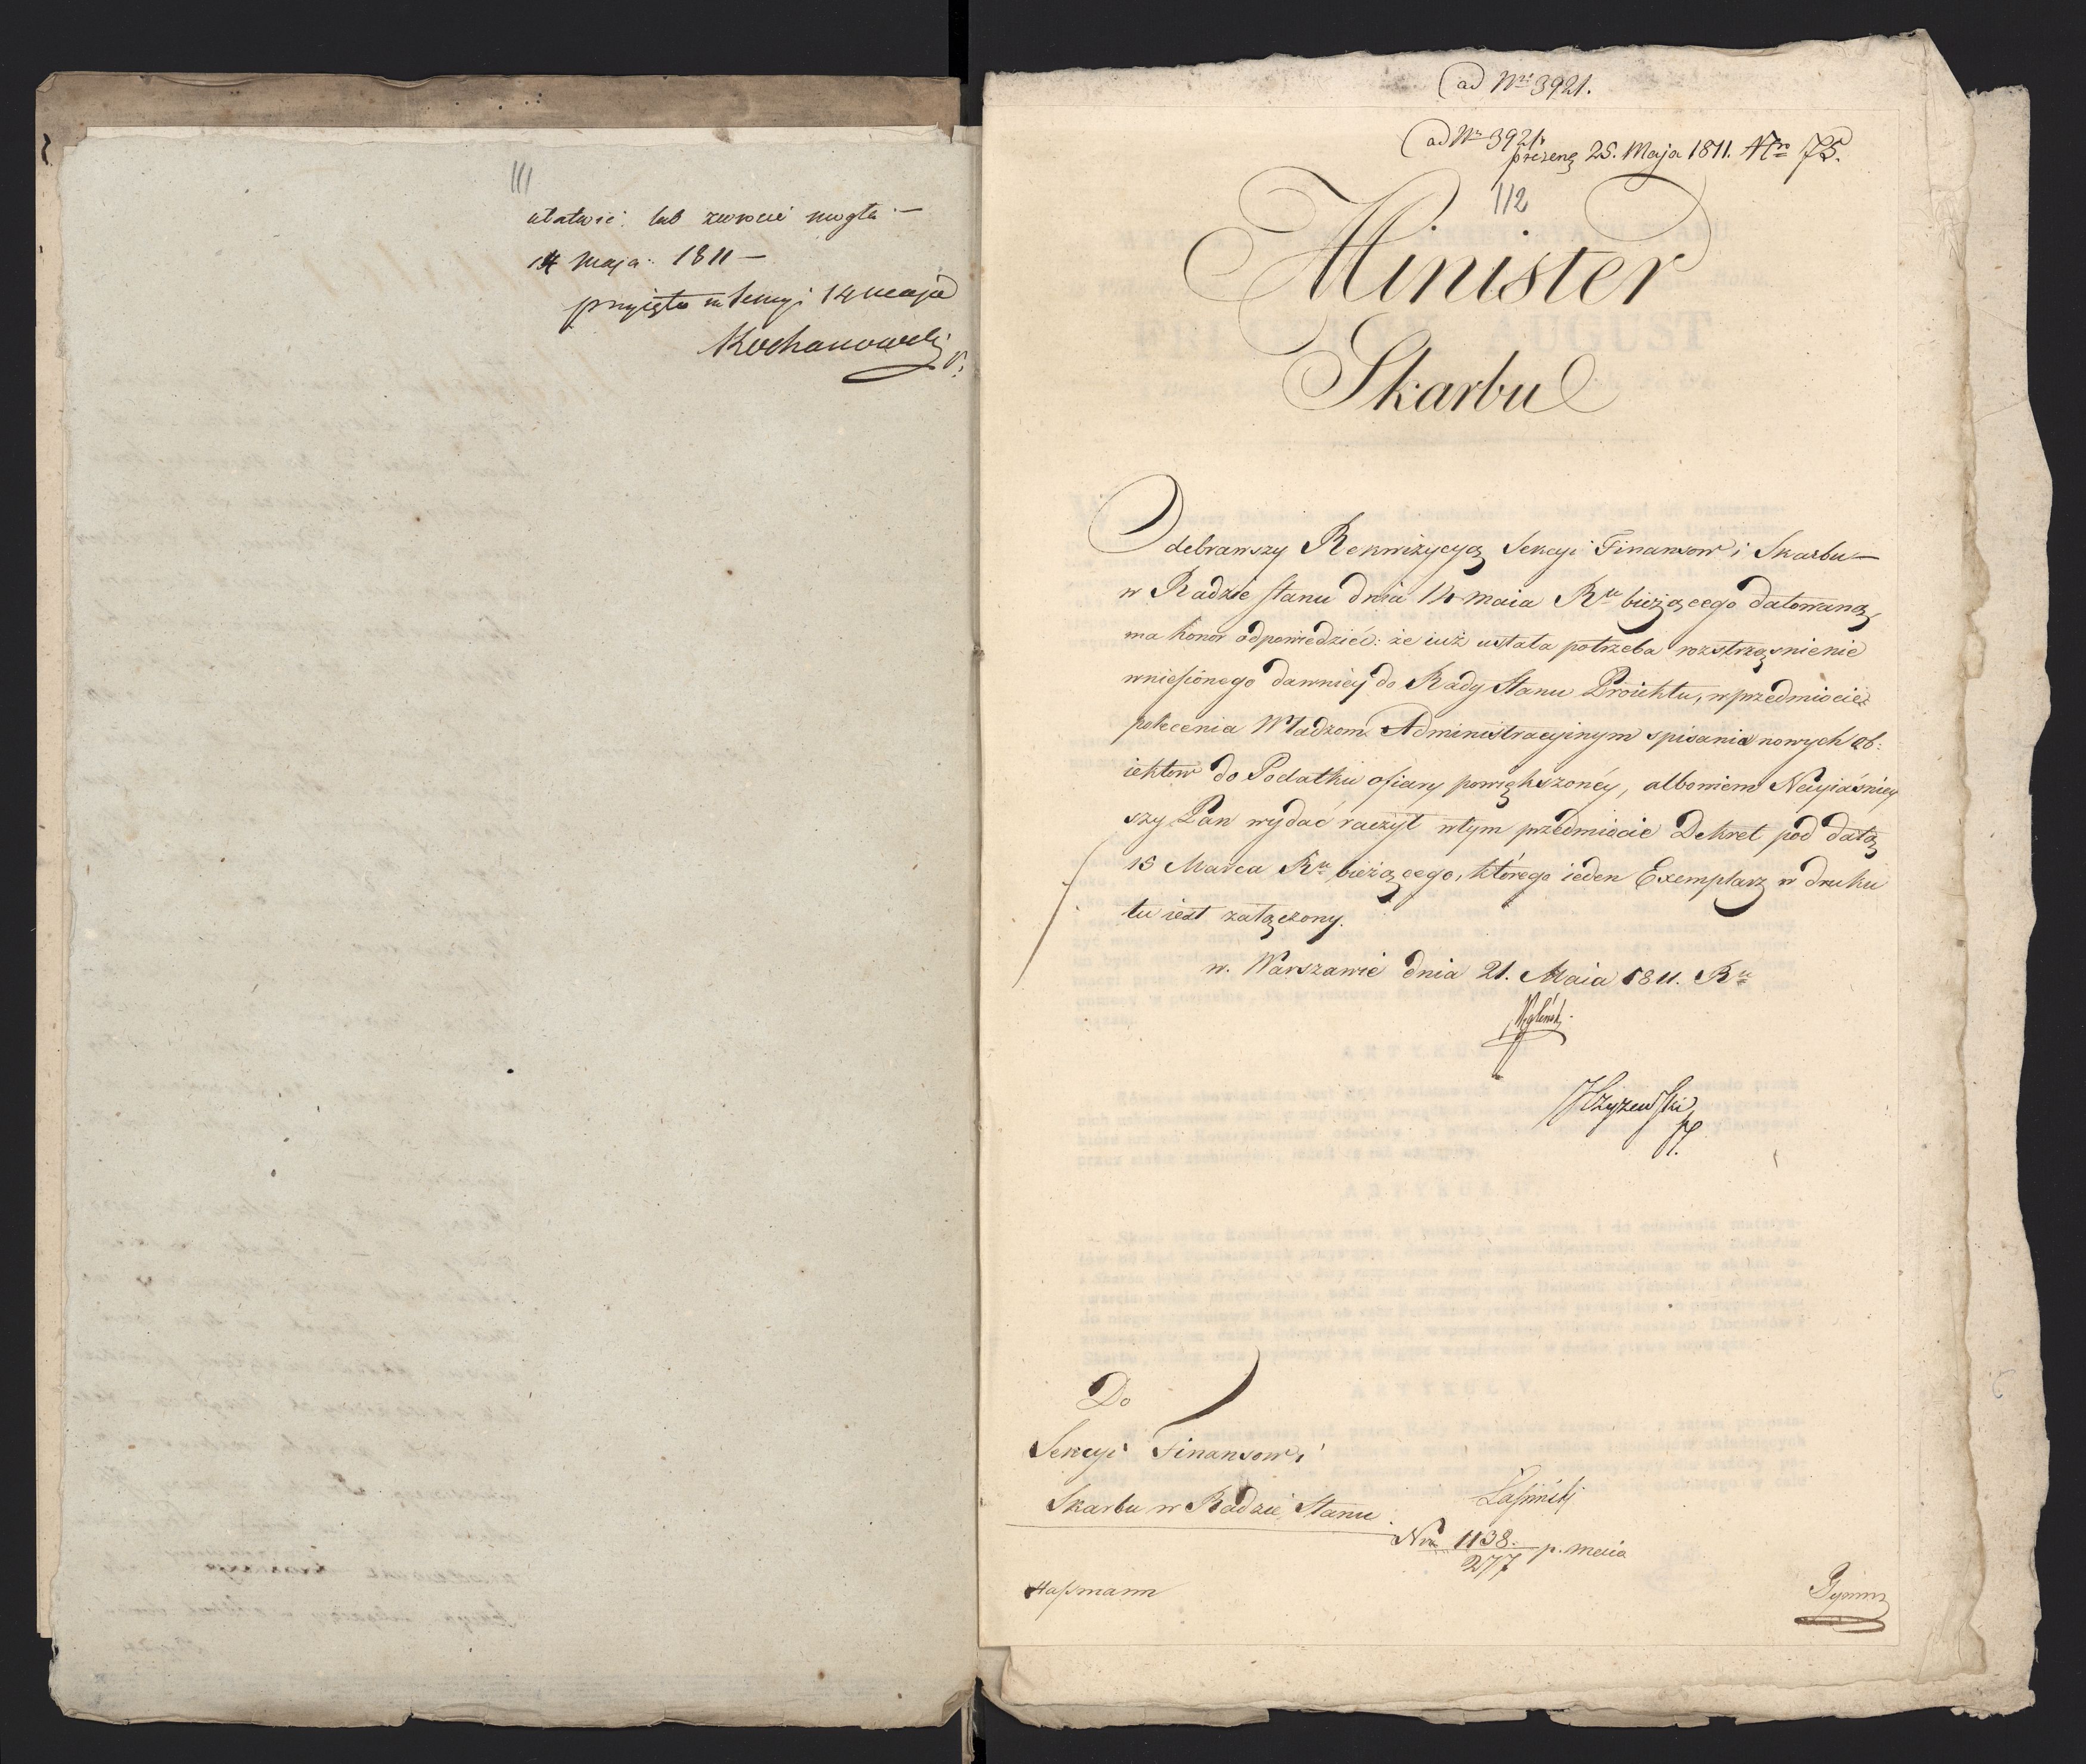 111
ułatwić lub zwrócić mogła —
14 maja 1811 —
przyięto 14 maja
Kochanowski
ad Nrú 3921.
ad Nr 3921.
prezent 25. Maja 1811. Nro 75.
112
Minister
Skarbu
Odebrawszy Rekwizycyą Sekcyi Finansow i Skarbu —
w Radzie stanu dnia 14 maia Ru bieżącego datowaną
ma honor odpowiedzieć: że iuż ustała potrzeba rozstrząsnienie
wniesionego dawniey do Rady Stanu Proiektu, w przedmiocie
polecenia Władzom Administracyinym spisania nowych ob:
iektow do Podatku ofiary powiększonéy, albowiem Nayiaśniey
szy Pan wydać raczył w tym przedmiocie Dekret pod datą
15 Marca Ru bieżącego, którego ieden Exemplarz w druku
tu iest załączony.
w. Warszawie dnia 21. Maia 1811. Ru
Węgleński
Do
Sekcyi Finansow i
Skarbu w Radzie Stanu
Nro 1138. p. maia
277
Hassmann